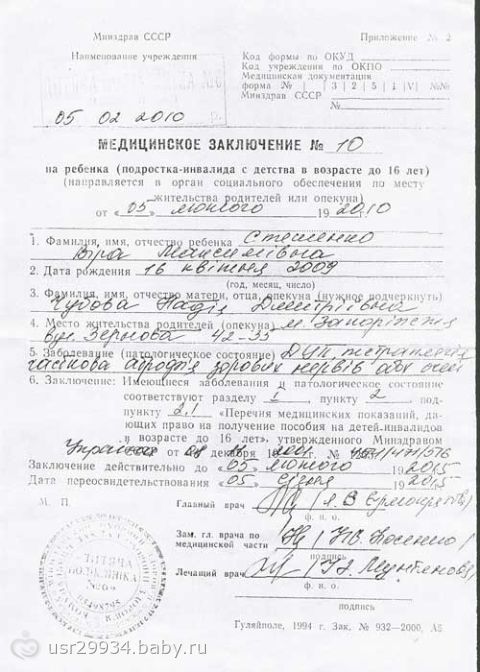 Минздрав СССР
Наименование учреждения
05 02 2010 г.
Приложение № 2
Код формы по ОКУД
Код учреждения по ОКПО
Медицинская документация
форма № 3 2 5 1 V №№
Минздрав СССР
№
МЕДИЦИНСКОЕ ЗАКЛЮЧЕНИЕ № 10
на ребенка (подростка-инвалида с детства в возрасте до 16 лет)
(направляется в орган социального обеспечения по месту
жительства родителей или опекуна)
от «05» лютого 19 2010
1. Фамилия, имя, отчество ребенка Стешенко
Віра Максимівна
2. Дата рождения 16 квітня 2009
(год, месяц, число)
3. Фамилия, имя, отчество матери, отца, опекуна (нужное подчеркнуть)
Чубова Надія Дмитрівна
4. Место жительства родителей (опекуна) м. Запоріжжя
вул. Зернова 42-35
5. Заболевание (патологическое состояние) ДЦП, тетраплегія
часткова атрофія зорових нервів обох очей
6. Заключение: Имеющиеся заболевания и патологическое состояние
соответствуют разделу 1, пункту 2 под-
пункту 2.1 «Перечня медицинских показаний, да-
ющих право на получение пособия на детей-инвалидов
в возрасте до 16 лет», утвержденного Минздравом
України от 08 декабря 2001 г. № 454/471/516
Заключение действительно до «05» лютого 19 2015
Дата переосвидетельствования «05» січня 2015
М. П.
Главный врач
ф. и. о.
Зам. гл. врача по
медицинской части Н.В. Косенко
подпись
Лечащий врач
ф. и. о.
подпись
ДИТЯЧА
ПОЛІКЛІНІКА
Гуляйполе, 1994 г. Зак. № 932—2000, А5
usr29934.baby.ru